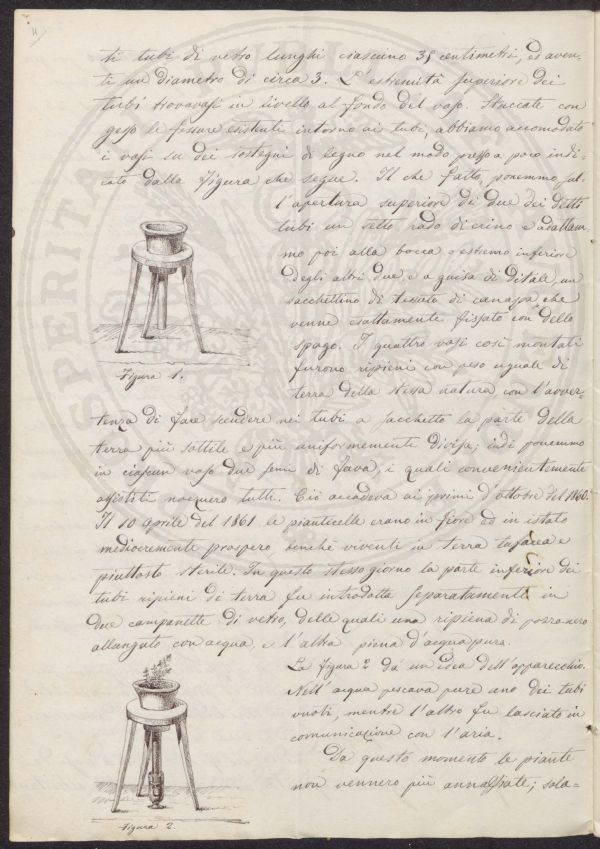 11
ti tubi di vetro lunghi ciascuno 35 centimetri, ed aven-
ti un diametro di circa 3. L'estremità superiore dei
tubi trovavasi in livello al fondo del vaso. Stuccate con
gesso le fessure esistenti intorno ai tubi, abbiamo accomodato
i vasi su dei sostegni di legno nel modo presso a poco indi-
cato dalla figura che segue. Il che fatto, ponemmo sul-
l'apertura superiore di due dei detti
tubi un setto rado di crino e adattam-
mo poi alla bocca o estremo inferiore
degli altri due, e a guisa di ditale, un
sacchettino di tessuto di canapa che
venne esattamente fissato con dello
spago. I quattro vasi così montati
furono ripieni con peso uguale di
terra della stessa natura con l'avver-
Figura 1.
tenza di fare scendere nei tubi a sacchetto la parte della
terra più sottile e più uniformemente divisa; indi ponemmo
in ciascun vaso due semi di fava, i quali convenientemente
assistiti nacquero tutti. Ciò accadeva ai primi d'ottobre del 1860.
Il 10 Aprile del 1861 le pianticelle erano in fiore ed in istato
mediocremente prospero, benchè viventi in terra tufacea e
piuttosto sterile. In questo stesso giorno la parte inferiore dei
tubi ripieni di terra fu introdotta separatamente in
due campanette di vetro, delle quali una ripiena di pozzo nero
allungato con acqua, e l'altra piena d'acqua pura.
La figura 2 dà un'idea dell'apparecchio.
Nell'acqua pescava pure uno dei tubi
vuoti, mentre l'altro fu lasciato in
comunicazione con l'aria.
Da questo momento le piante
non vennero più annaffiate; sola-
Figura 2.